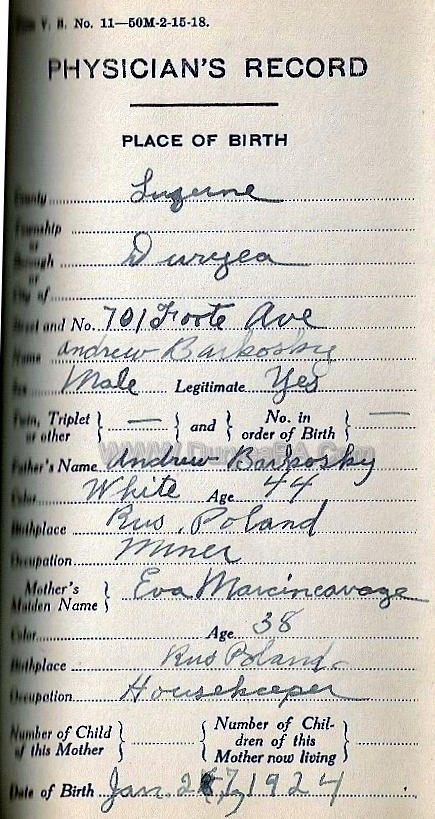 Form V. S. No. 11—50M-2-15-18.
PHYSICIAN'S RECORD
PLACE OF BIRTH
County Luzerne
Township
or
Borough Duryea
or
City of
Street and No. 701 Foote Ave
Name Andrew Barkosky
Sex Male Legitimate Yes
Twin, Triplet or other } — { and } No. in order of Birth } —
WWW.DuryeaPA.Com
Father's Name Andrew Barkosky
Color White Age 44
Birthplace Rus. Poland
Occupation Miner
Mother's Maiden Name } Eva Marcincavage
Color Age 38
Birthplace Rus Poland
Occupation Housekeeper
Number of Child of this Mother } { Number of Children of this Mother now living }
Date of Birth Jan. 27, 1924